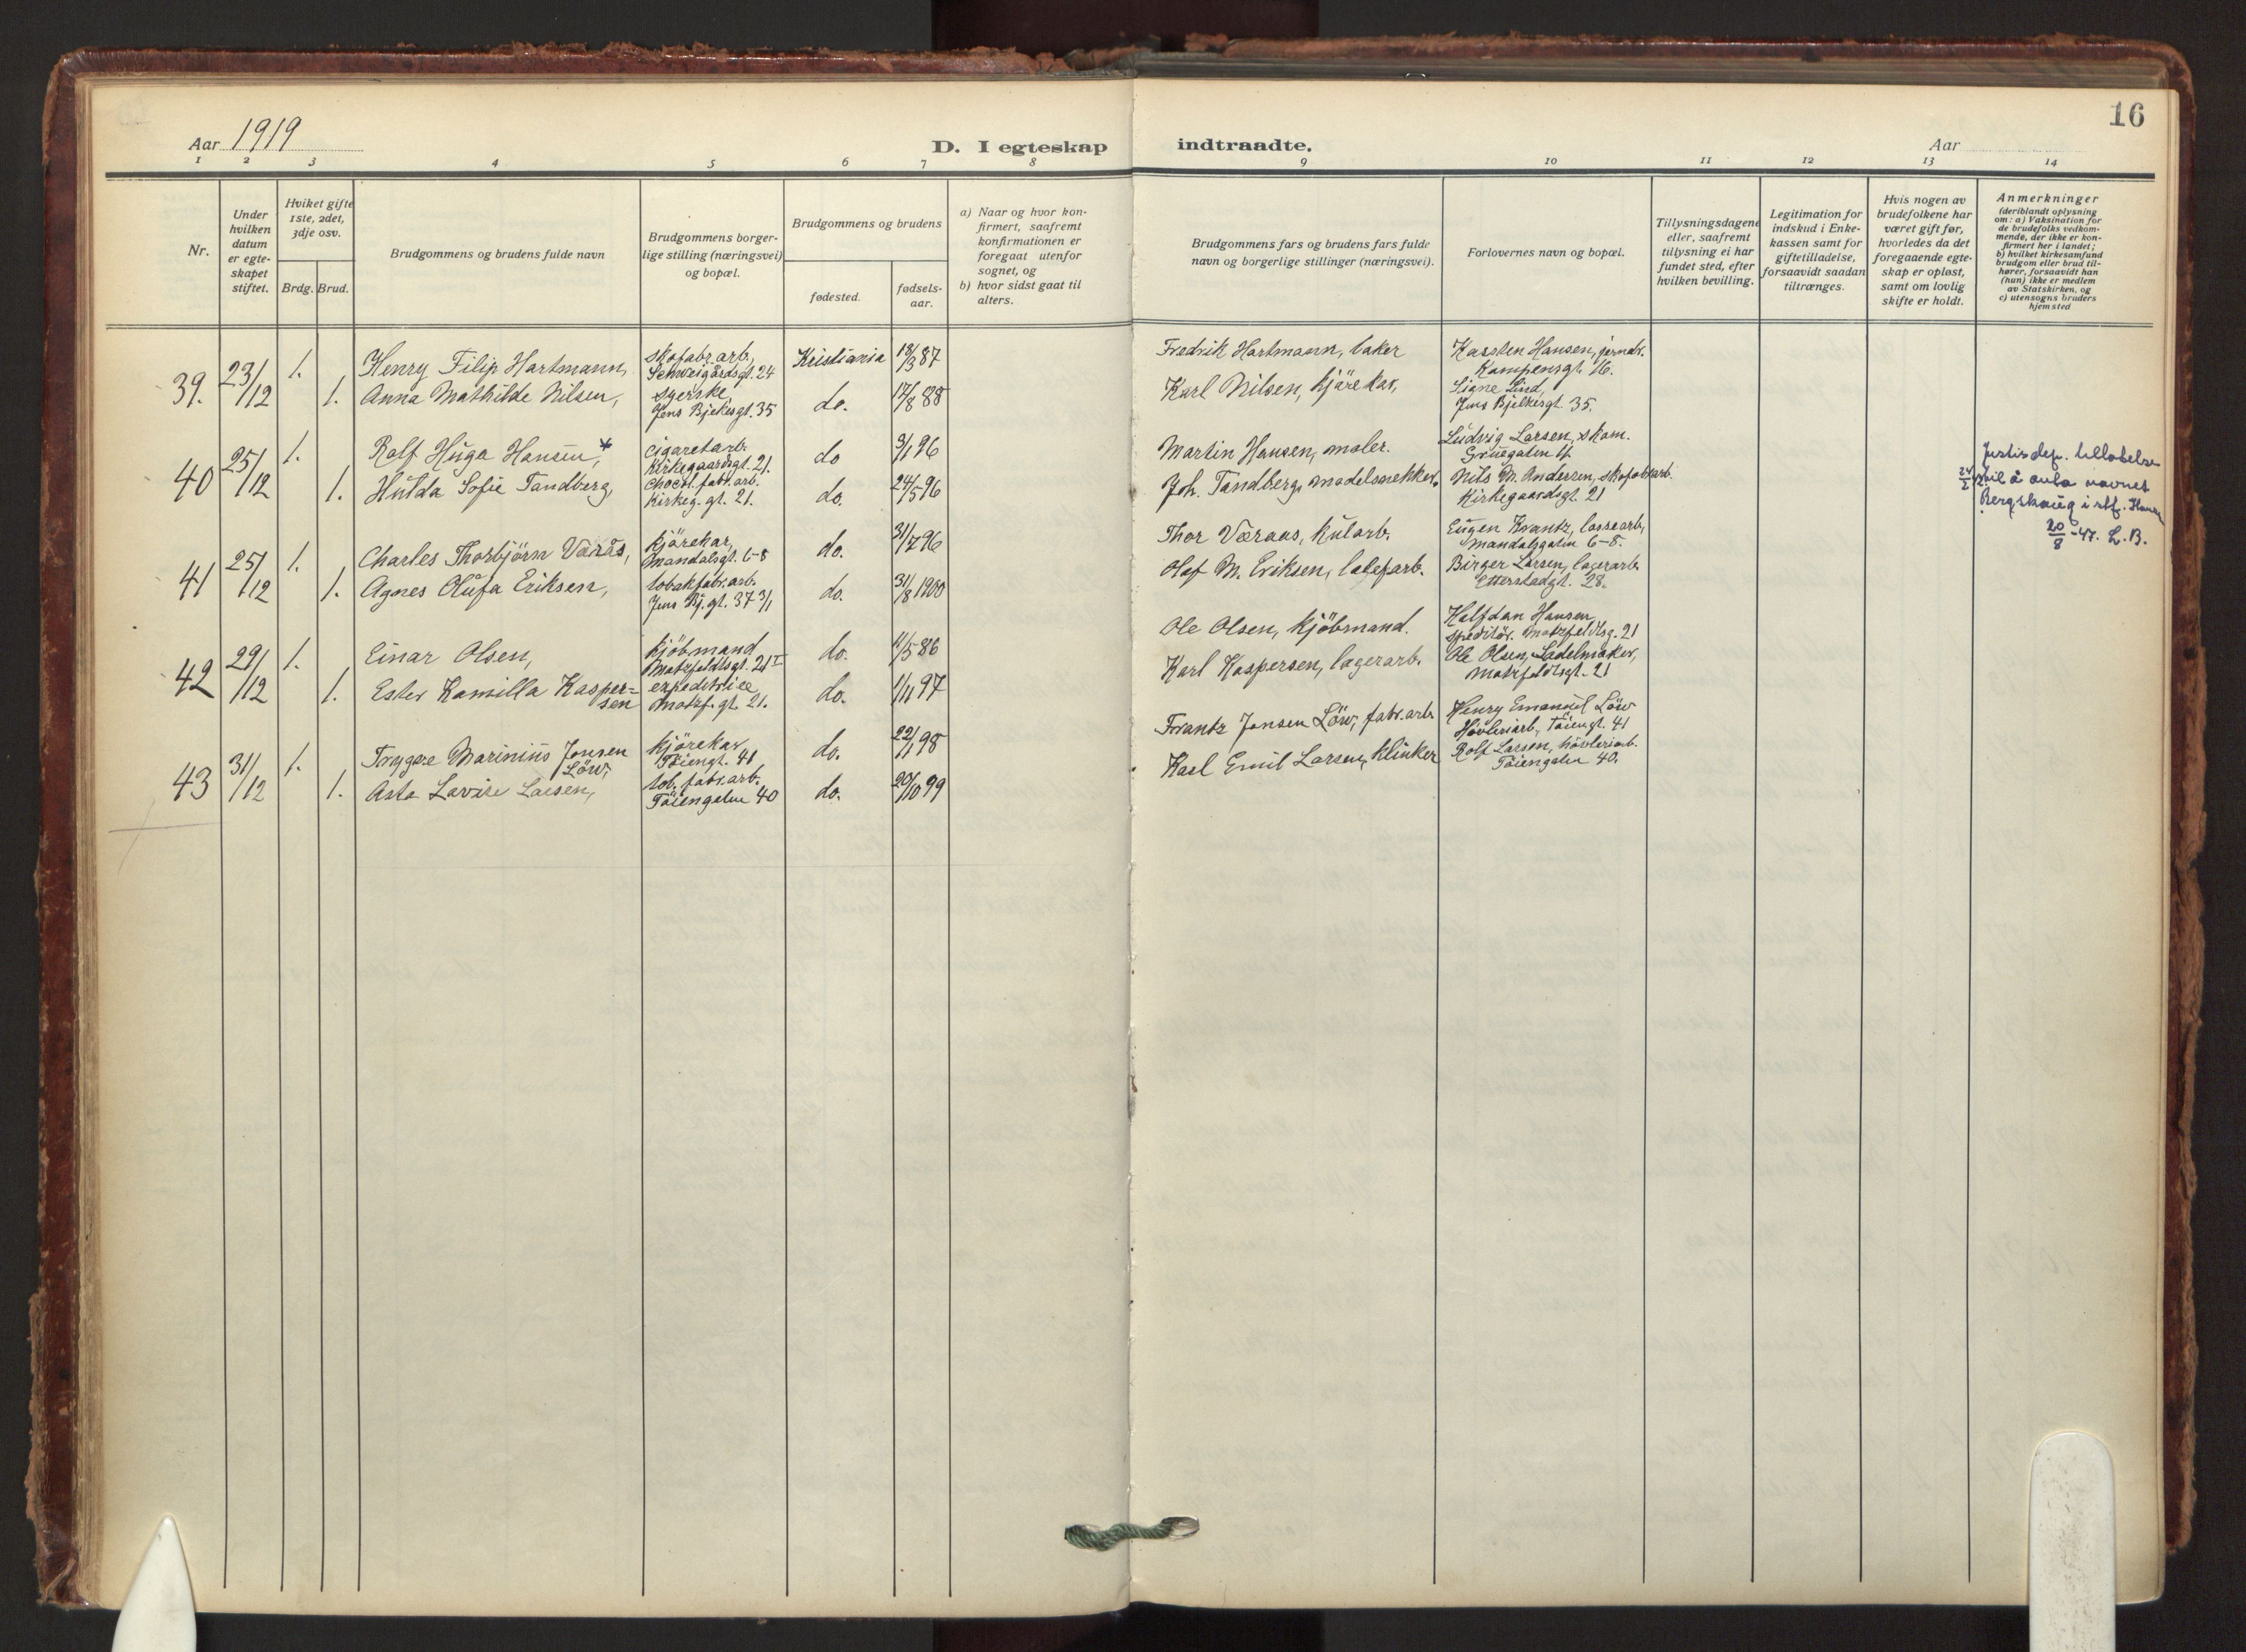 16
Aar 1919
D. I egteskap indtraadte.
Aar
1 2 3 4 5 6 7 8 9 10 11 12 13 14
Nr.
Under
hvilken
datum
er egte-
skapet
stiftet.
Hviket gifte
1ste, 2det,
3dje osv.
Brdg. Brud.
Brudgommens og brudens fulde navn
Brudgommens borger-
lige stilling (næringsvei)
og bopæl.
Brudgommens og brudens
fødested.
fødsels-
aar.
a) Naar og hvor kon-
firmert, saafremt
konfirmationen er
foregaat utenfor
sognet, og
b) hvor sidst gaat til
alters.
Brudgommens fars og brudens fars fulde
navn og borgerlige stillinger (næringsvei).
Forlovernes navn og bopæl.
Tillysningsdagene
eller, saafremt
tillysning ei har
fundet sted, efter
hvilken bevilling.
Legitimation for
indskud i Enke-
kassen samt for
giftetilladelse,
forsaavidt saadan
tiltrænges.
Hvis nogen av
brudefolkene har
været gift før,
hvorledes da det
foregaaende egte-
skap er opløst,
samt om lovlig
skifte er holdt.
Anmerkninger
(deriblandt oplysning
om: a) Vaksination for
de brudefolks vedkom-
mende, der ikke er kon-
firmert her i landet;
b) hvilket kirkesamfund
brudgom eller brud til-
hører, forsaavidt han
(hun) ikke er medlem
av Statskirken, og
c) utensogns bruders
hjemsted
39. 23/12 1. Henry Filip Hartmann,
skofabr.arb.,
Schweigårdsgt. 24
Kristiania 18/3 87
Fredrik Hartmann, baker
Karsten Hansen, jerndr.
Kampensgt. 16.
1. Anna Mathilde Nilsen,
syerske,
Jens Bjelkesgt. 35
do. 17/8 88
Karl Nilsen, kjörekar,
Signe Lind,
Jens Bjelkesgt. 35.
40 25/12 1. Rolf Hugo Hansen,*
cigaretarb.
Kirkegaardsgt. 21.
do 3/1 96
Martin Hansen, maler.
Ludvig Larsen, skom.
Gruegaten 4.
1. Hulda Sofie Tandberg,
chocol.fabr.arb.
Kirkeg.gt. 21.
do. 24/5 96
Joh. Tandberg, modelsnekker.
Nils M. Andersen, skofabrarb.
Kirkegaardsgt. 21
Justisdep. tillatelse
til å anta navnet
Bergskaug i stf. Hansen
20/8 -47. L.B.
41 25/12 1. Charles Thorbjörn Værås,
kjörekar,
Mandalsgt. 6-8
do. 31/7 96
Thor Væraas, kularb.
Eugen Krantz, lossearb,
Mandalsgaten 6-8.
1. Agnes Olufa Eriksen,
tobakfabr.arb.
Jens Bj.gt. 37 3/1
do. 31/8 1900
Olaf M. Eriksen,
Birger Larsen, lagerarb.
Etterstadgt. 28.
42 29/12 1. Einar Olsen,
kjöbmand
Motzfeldtsgt. 21 I
do. 11/5 86
Ole Olsen, kjöbmand.
Halfdan Hansen,
speditör. Motzfeldtsg. 21
1. Ester Kamilla Kasper=
sen
expeditrice
Motzf.gt. 21.
do. 1/11 97
Karl Kaspersen, lagerarb.
Ole Olsen, Sadelmaker,
Motzfeldtsgt. 21
43 31/12 1. Trygve Marinius Jonsen
Löw,
kjörekar
Töiengt. 41
do. 22/1 98
Frantz Jonsen Löw, fabr.arb.
Henry Emanuel Löw
Hövleriarb., Töiengt. 41
1. Asta Lovise Larsen,
tob.fabr.arb.
Töiengaten 40
do. 20/10 99
Karl Emil Larsen, klinker
Rolf Larsen, hövleriarb.
Töiengaten 40.